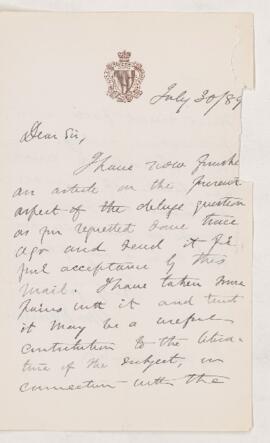 July 30/89
Dear Sir,
I have now finishe
an article on the present
aspect of the deluge question
as you requested some time
ago and send it for
your acceptance by this
mail. I have taken some
pains with it and trust
it may be a useful
contribution to the litera-
ture of the subject, in
connection with the